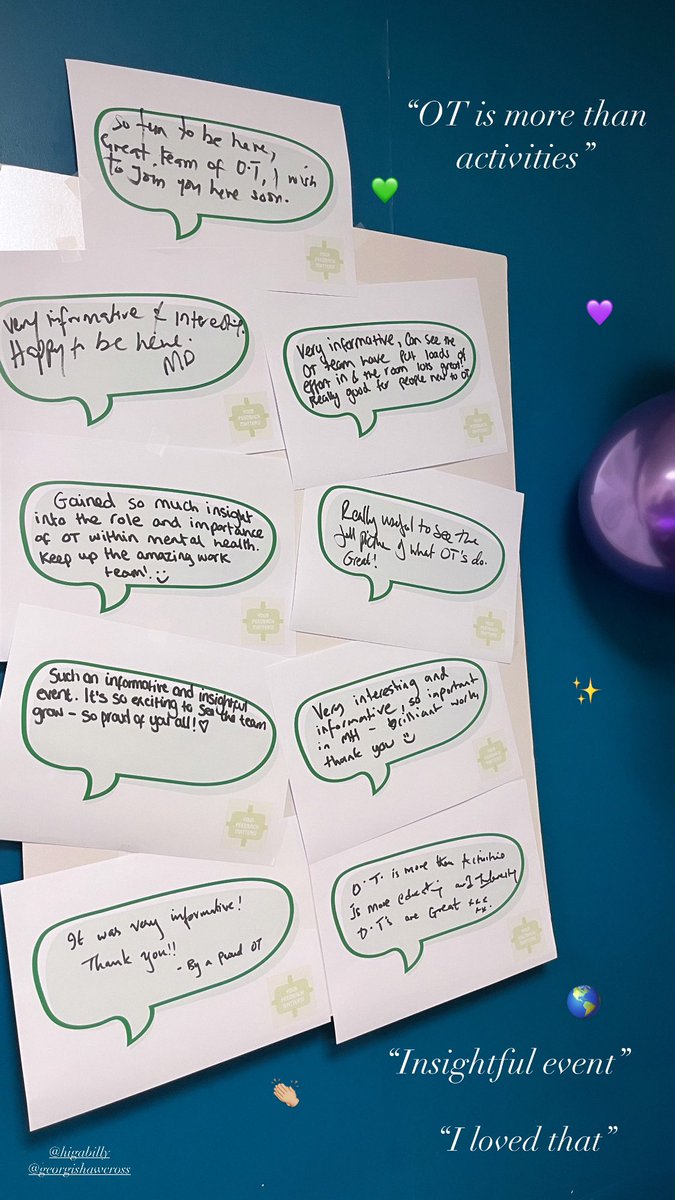 “OT is more than
activities”
So fun to be here,
Great team of O.T, I wish
to Join you here soon.
YOUR
FEEDBACK
MATTERS!
Very informative & Interesting.
Happy to be here.
MD
YOUR
FEEDBACK
MATTERS!
Very informative, Can see the
OT team have put loads of
effort in & the room lots great!
Really good for people new to OT
YOUR
FEEDBACK
MATTERS!
Gained so much insight
into the role and importance
of OT within mental health.
Keep up the amazing work
team!
YOUR
FEEDBACK
MATTERS!
Really useful to see the
full picture of what OT's do.
Great!
YOUR
FEEDBACK
MATTERS!
Such an informative and insightful
event. It's so exciting to see the team
grow - so proud of you all!
YOUR
FEEDBACK
MATTERS!
Very interesting and
informative, so important
in MH - brilliant work,
thank you
YOUR
FEEDBACK
MATTERS!
It was very informative!
Thank you!!
- By a Proud OT
YOUR
FEEDBACK
MATTERS!
O.T. is more than Activities
Is more educating and
O.T's are Great xxx
xx.
YOUR
FEEDBACK
MATTERS!
“Insightful event”
“I loved that”
@higabilly
@georgishawcross